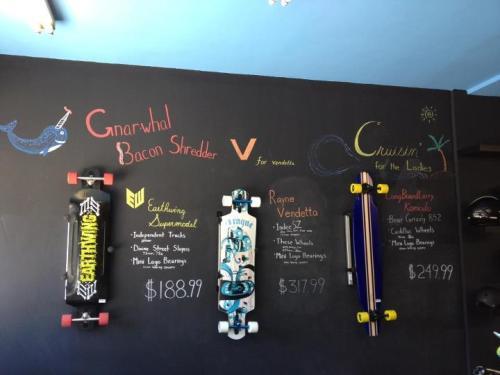 Gnarwhal
Bacon Shredder
V
for vendetta
Cruisin'
for the Ladies
EW
Earthwing
Supermodel
· Independent Trucks
· Divine Street Slayers
· Mini Logo Bearings
$188.99
EARTHWING
Rayne
Vendetta
· Indee
· These Wheels
· Mini Logo Bearings
$317.99
LongBoardLarry
· Bear Grizzly 852
· Cadillac Wheels
· Mini Logo Bearings
$249.99